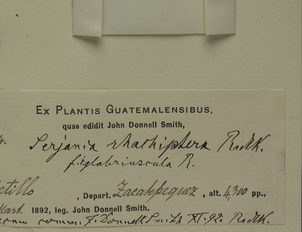 Ex Plantis Guatemalensibus,
quas edidit John Donnell Smith,
Serjania rhachiptera Radlk.
f. glabriuscula R.
, Depart. Zacatepequez, alt. 4,300 pp.,
1892, leg. John Donnell Smith.
comm. J. Donnell Smith XI. 92. Radlk.